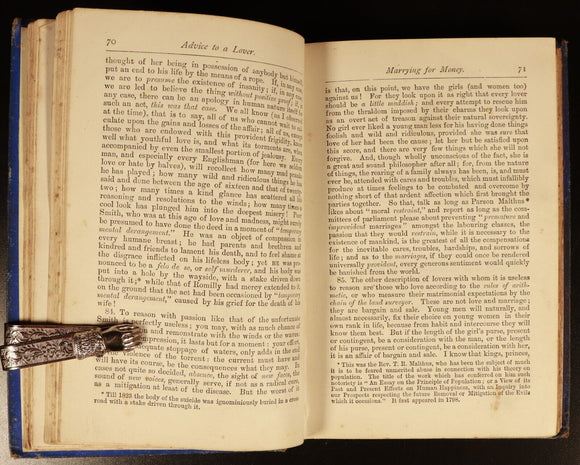 70 Advice to a Lover.
thought of her being in possession of anybody but himself,
put an end to his life by the means of a rope. If, in any case,
we are to presume the existence of insanity; if, in any case,
we are led to believe the thing without positive proof; if, in
any case, there can be an apology in human nature itself for
such an act, this was that case. We all know (as I observed
at the time), that is to say, all of us who cannot wait to cal-
culate upon the gains and losses of the affair; all of us, except
those who are endowed with this provident frigidity, know
well what youthful love is, and what its torments are, when
accompanied by even the smallest portion of jealousy. Every
man, and especially every Englishman (for here we seldom
love or hate by halves), will recollect how many mad pranks
he has played; how many wild and ridiculous things he has
said and done between the age of sixteen and that of twenty-
two; how many times a kind glance has scattered all his
reasoning and resolutions to the winds; how many times a
cool look has plunged him into the deepest misery! Poor
Smith, who was at this age of love and madness, might surely
be presumed to have done the deed in a moment of "temporary
mental derangement." He was an object of compassion in
every humane breast; he had parents and brethren and
kindred and friends to lament his death, and to feel shame at
the disgrace inflicted on his lifeless body; yet he was pro-
nounced to be a felo de se, or self-murderer, and his body was
put into a hole by the wayside, with a stake driven down
through it;* while that of Romilly had mercy extended to it,
on the ground that the act had been occasioned by "temporary
mental derangement," caused by his grief for the death of his
wife!
84. To reason with passion like that of the unfortunate
Smith is perfectly useless; you may, with as much chance of
and remonstrate with the winds or the waves.
impression, it lasts but for a moment; your effort,
adequate stoppage of waters, only adds in the end
violence of the torrent; the current must have and
will have its course, the consequences what they may. In
cases not quite so decided, absence, the sight of new faces, the
sound of new voices, generally serve, if not as a radical cure,
as a mitigation at least of the disease. But the worst of it
* Till 1823 the body of the suicide was ignominiously buried in a cross-
road with a stake driven through it.
Marrying for Money. 71
is that, on this point, we have the girls (and women too)
against us! For they look upon it as right that every lover
should be a little maddish; and every attempt to rescue him
from the thraldom imposed by their charms they look upon
as an overt act of treason against their natural sovereignty.
No girl ever liked a young man less for his having done things
foolish and wild and ridiculous, provided she was sure that
love of her had been the cause; let her but be satisfied upon
this score, and there are very few things which she will not
forgive. And, though wholly unconscious of the fact, she is
a great and sound philosopher after all; for, from the nature
of things, the rearing of a family always has been, is and must
ever be, attended with cares and troubles, which must infallibly
produce at times feelings to be combated and overcome by
nothing short of that ardent affection which first brought the
parties together. So that, talk as long as Parson Malthus*
likes about "moral restraint," and report as long as the com-
mittees of parliament please about preventing "premature and
improvident marriages" amongst the labouring classes, the
passion that they would restrain, while it is necessary to the
existence of mankind, is the greatest of all the compensations
for the inevitable cares, troubles, hardships, and sorrows of
life; and as to the marriages, if they could once be rendered
universally provident, every generous sentiment would quickly
be banished from the world.
85. The other description of lovers with whom it is useless
to reason are those who love according to the rules of arith-
metic, or who measure their matrimonial expectations by the
chain of the land surveyor. These are not love and marriage;
they are bargain and sale. Young men will naturally, and
almost necessarily, fix their choice on young women in their
own rank in life, because from habit and intercourse they will
know them best. But if the length of the girl's purse, present
or contingent, be a consideration with the man, or the length
of his purse, present or contingent, be a consideration with her,
it is an affair of bargain and sale. I know that kings, princes,
* This was the Rev. T. R. Malthus, who has been the subject of much
it is to be feared unmerited abuse in connection with his theory of
population. The title of the work which has conferred on him such
notoriety is "An Essay on the Principle of Population; or a View of its
Past and Present Effects on Human Happiness, with an Inquiry into
our Prospects respecting the future Removal or Mitigation of the Evils
which it occasions." It first appeared in 1798.